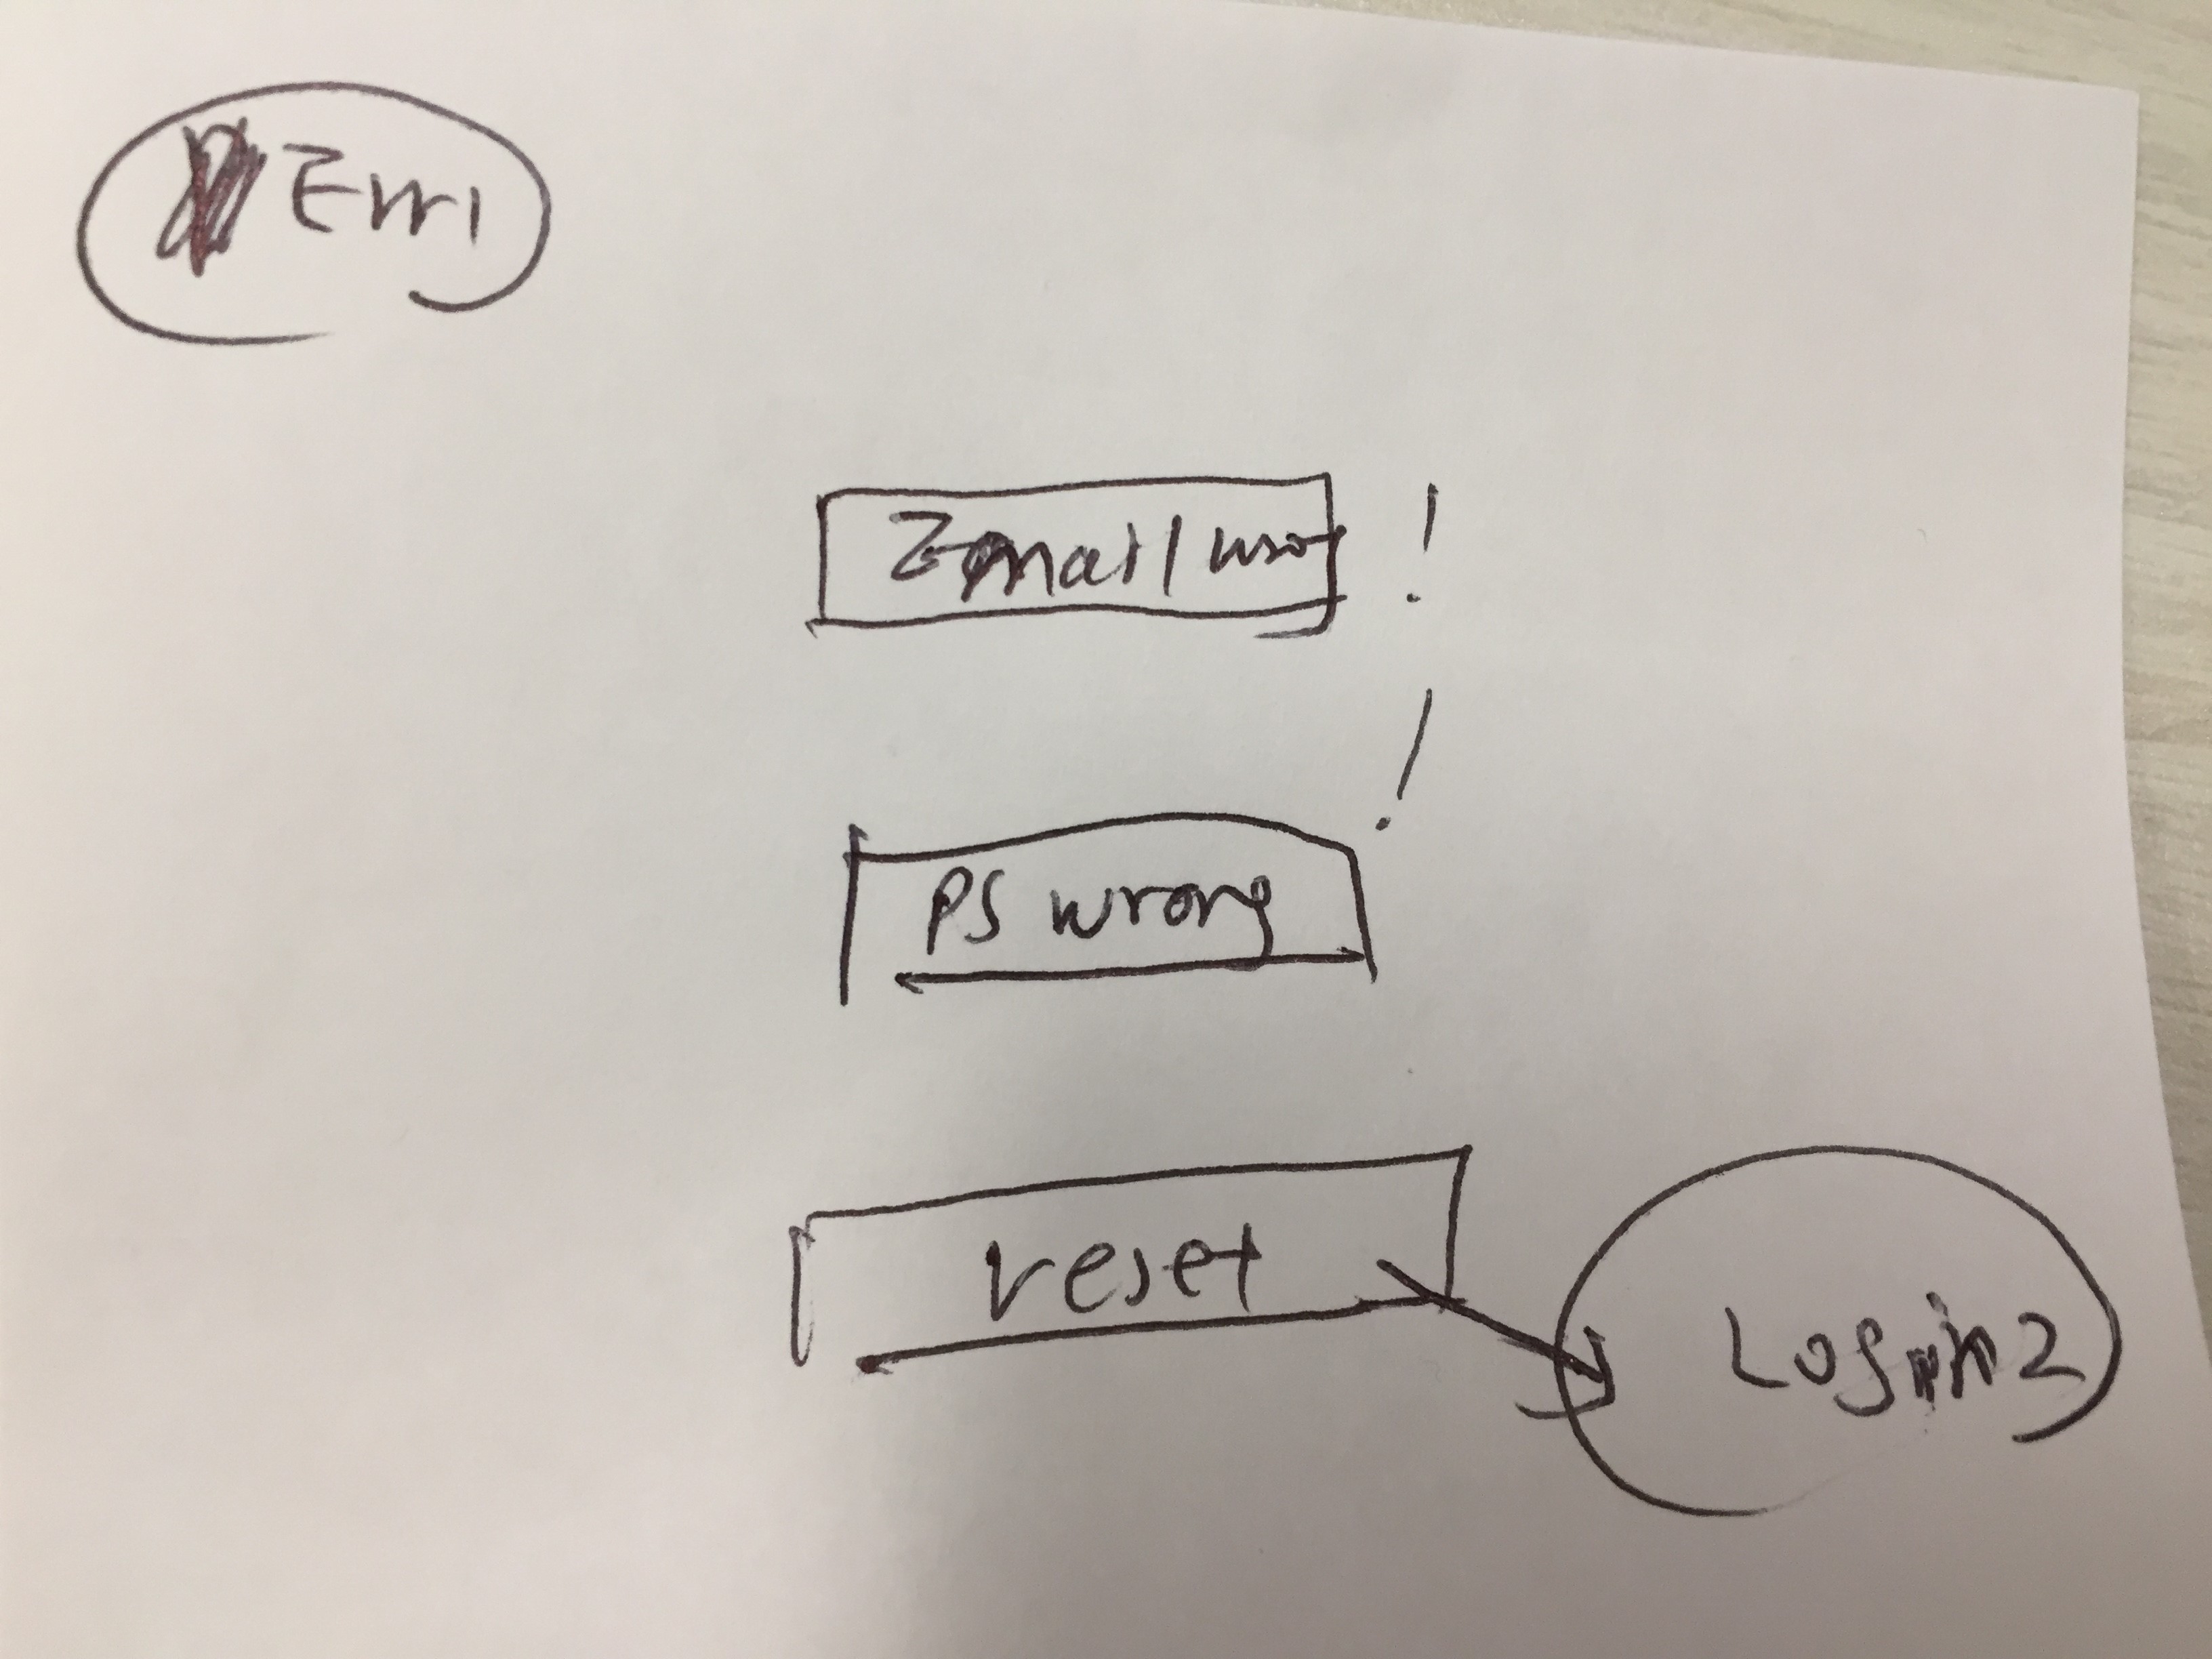 Err1
Email wrong !
!
PS wrong
reset
Login2